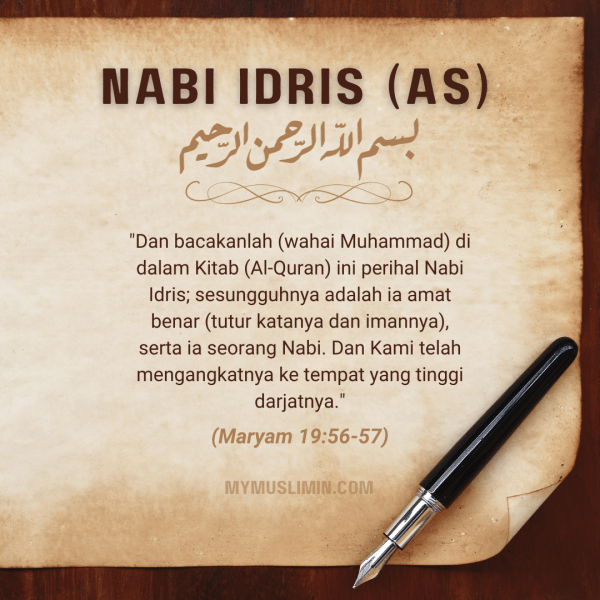 NABI IDRIS (AS)
بسم الله الرحمن الرحيم
"Dan bacakanlah (wahai Muhammad) di
dalam Kitab (Al-Quran) ini perihal Nabi
Idris; sesungguhnya adalah ia amat
benar (tutur katanya dan imannya),
serta ia seorang Nabi. Dan Kami telah
mengangkatnya ke tempat yang tinggi
darjatnya."
(Maryam 19:56-57)
MYMUSLIMIN.COM